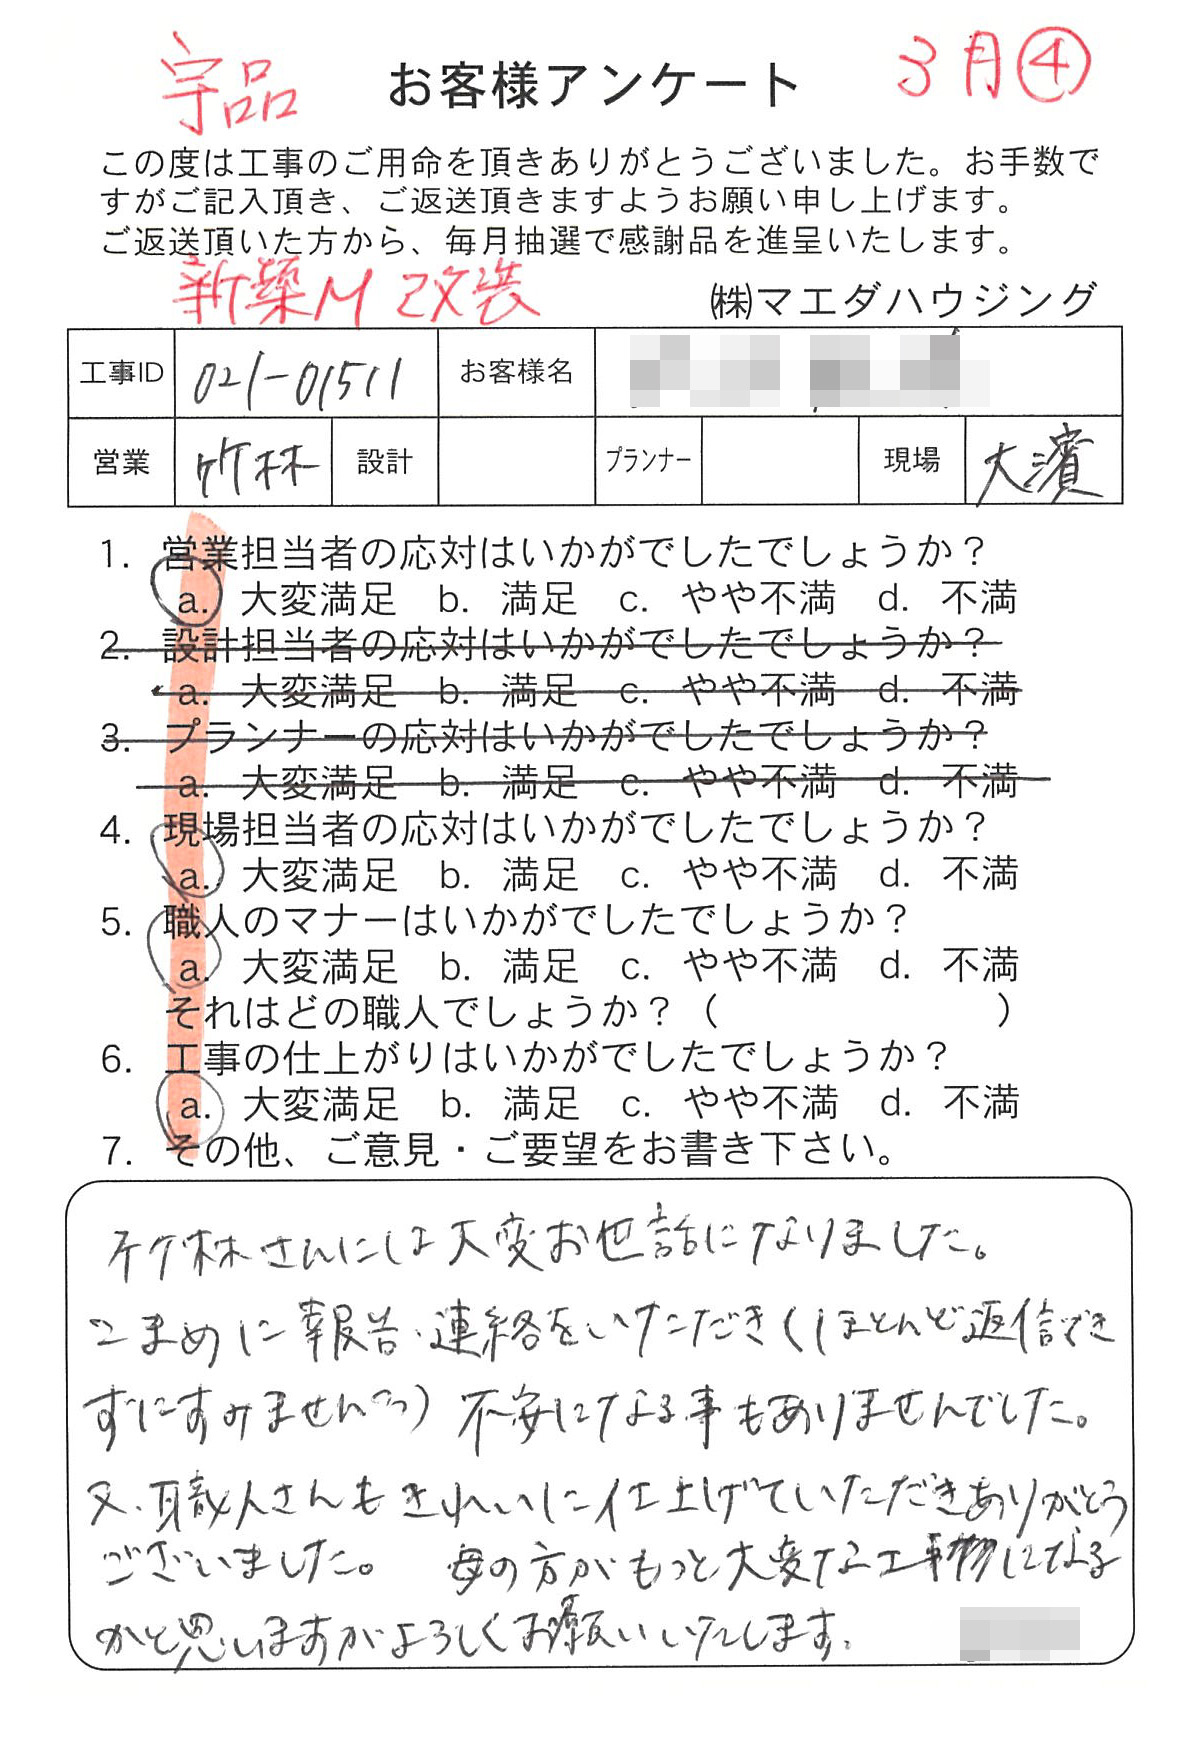 宇品
3月④
お客様アンケート
この度は工事のご用命を頂きありがとうございました。お手数で
すがご記入頂き、ご返送頂きますようお願い申し上げます。
ご返送頂いた方から、毎月抽選で感謝品を進呈いたします。
新築M 改装
㈱マエダハウジング
工事ID 021-01511 お客様名
営業 竹林 設計 プランナー 現場 大濱
1. 営業担当者の応対はいかがでしたでしょうか?
a. 大変満足 b. 満足 c. やや不満 d. 不満
2. 設計担当者の応対はいかがでしたでしょうか?
a. 大変満足 b. 満足 c. やや不満 d. 不満
3. プランナーの応対はいかがでしたでしょうか?
a. 大変満足 b. 満足 c. やや不満 d. 不満
4. 現場担当者の応対はいかがでしたでしょうか?
a. 大変満足 b. 満足 c. やや不満 d. 不満
5. 職人のマナーはいかがでしたでしょうか?
a. 大変満足 b. 満足 c. やや不満 d. 不満
それはどの職人でしょうか?( )
6. 工事の仕上がりはいかがでしたでしょうか?
a. 大変満足 b. 満足 c. やや不満 d. 不満
7. その他、ご意見・ご要望をお書き下さい。
竹林さんには大変お世話になりました。
こまめに報告・連絡をいただき(ほとんど返信でき
ずにすみません) 不安になる事もありませんでした。
又、職人さんもきれいに仕上げていただきありがとう
ございました。 母の方がもっと大変な工事になる
かと思いますがよろしくお願いいたします。